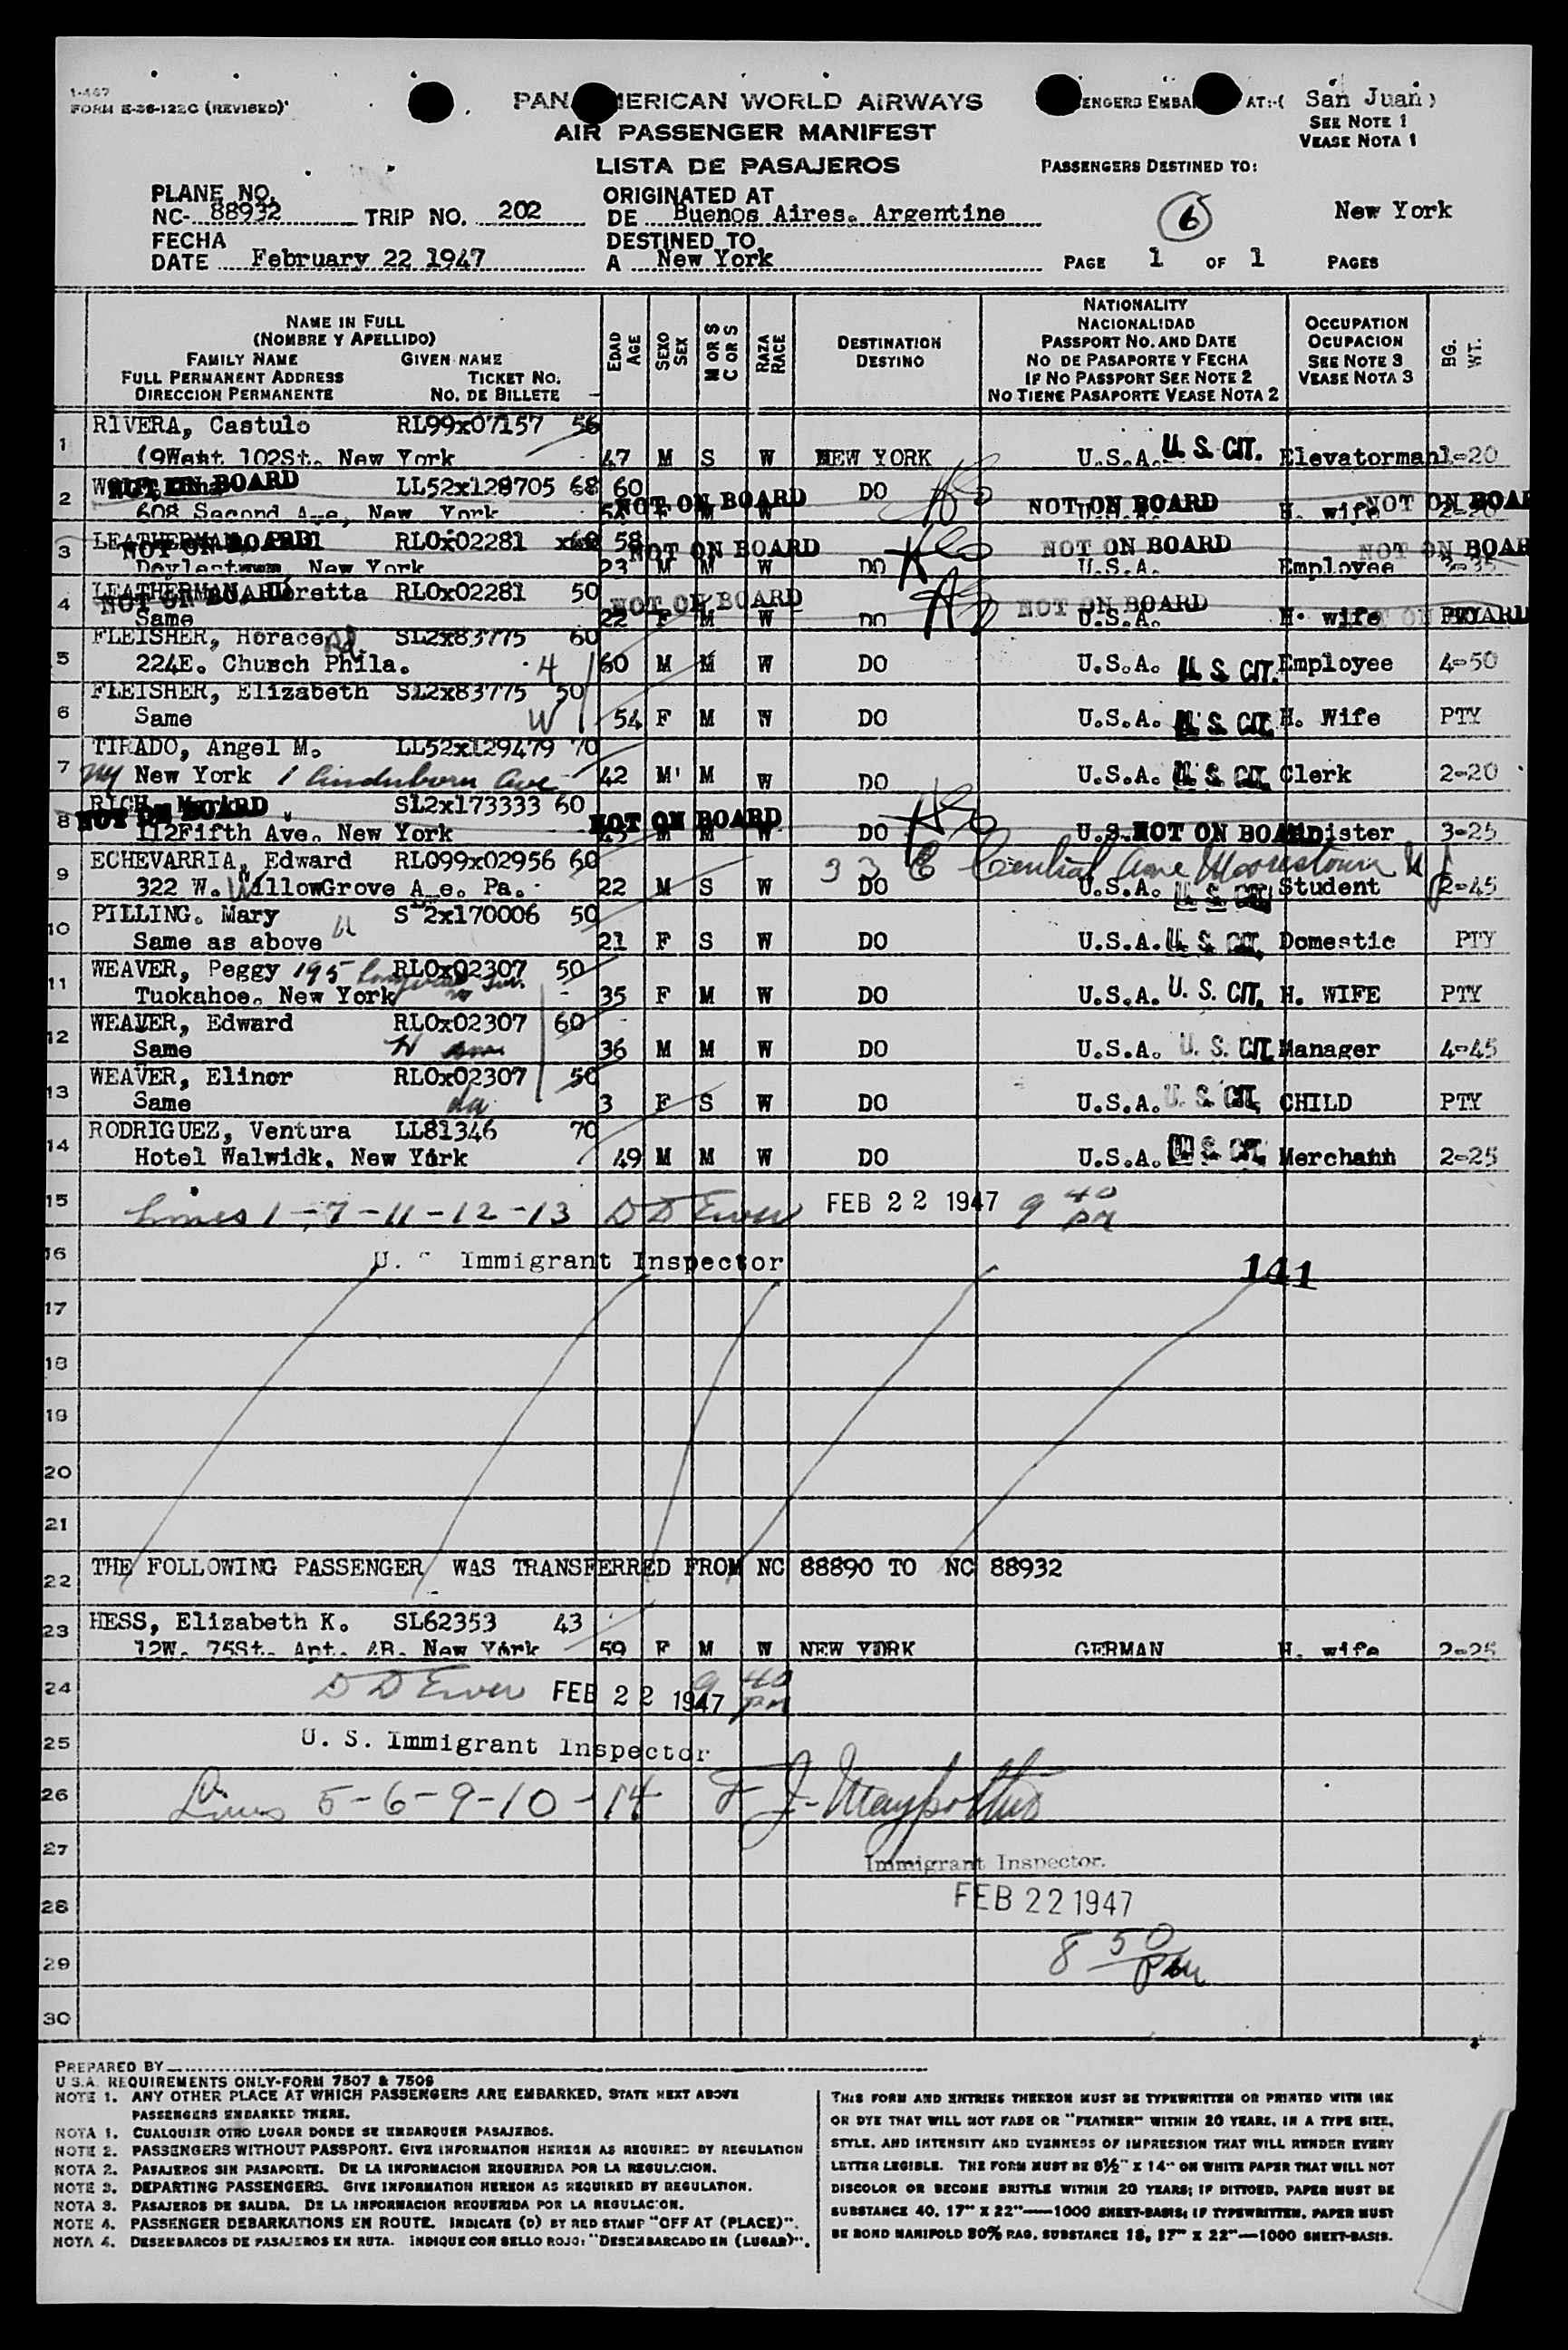 1-467
FORM E-26-122C (REVISED)
PAN AMERICAN WORLD AIRWAYS
AIR PASSENGER MANIFEST
LISTA DE PASAJEROS
AT:-( San Juan)
SEE NOTE 1
VEASE NOTA 1
PASSENGERS DESTINED TO:
PLANE NO.
NC- 88932 TRIP NO. 202
ORIGINATED AT
DE Buenos Aires. Argentine
6
New York
FECHA
DATE February 22 1947
DESTINED TO
A New York
PAGE 1 OF 1 PAGES
NAME IN FULL
(NOMBRE Y APELLIDO)
FAMILY NAME GIVEN NAME
FULL PERMANENT ADDRESS TICKET NO.
DIRECCION PERMANENTE NO. DE BILLETE
EDAD AGE
SEXO SEX
M OR S C OR S
RAZA RACE
DESTINATION
DESTINO
NATIONALITY
NACIONALIDAD
PASSPORT NO. AND DATE
NO DE PASAPORTE Y FECHA
IF NO PASSPORT SEE NOTE 2
NO TIENE PASAPORTE VEASE NOTA 2
OCCUPATION
OCUPACION
SEE NOTE 3
VEASE NOTA 3
BG. WT.
1 RIVERA, Castulo RL99x07157 56
(9West 102St. New York 47 M S W NEW YORK U.S.A. U. S. CIT. Elevatorman 1-20
2 NOT ON BOARD LL52x128705 68 60 NOT ON BOARD DO NOT ON BOARD NOT ON BOAR
608 Second Ave, New York F M W U.S.A. H. wife 2-20
3 LEATHERMAN, NOT ON BOARD RLOx02281 58 NOT ON BOARD NOT ON BOARD NOT ON BOAR
Doylestown, New York 23 M M W DO U.S.A. Employee 3-35
4 LEATHERMAN, Loretta RLOx02281 50 NOT ON BOARD NOT ON BOARD NOT ON BOARD
Same 22 F M W DO U.S.A. H. wife PTY
5 FLEISHER, Horace SL2x83775 60
224E. Chusch Rd. Phila. 4 60 M M W DO U.S.A. U. S. CIT. Employee 4-50
6 FLEISHER, Elizabeth SL2x83775 50
Same W 54 F M W DO U.S.A. U. S. CIT. H. Wife PTY
7 TIRADO, Angel M. LL52x129479 70
New York 1 42 M M W DO U.S.A. U. S. CIT. Clerk 2-20
8 RICH, NOT ON BOARD SL2x173333 60 NOT ON BOARD
112Fifth Ave. New York M M W DO U.S. NOT ON BOARD Minister 3-25
9 ECHEVARRIA, Edward RLO99x02956 60 33 E Central Ave Moorestown N J
322 W. WillowGrove A e. Pa. 22 M S W DO U.S.A. U. S. CIT. Student 2-45
10 PILLING. Mary S 2x170006 50
Same as above 21 F S W DO U.S.A. U. S. CIT. Domestic PTY
11 WEAVER, Peggy 195 RLOx02307 50
Tuokahoe. New York 35 F M W DO U.S.A. U. S. CIT. H. WIFE PTY
12 WEAVER, Edward RLOx02307 60
Same 36 M M W DO U.S.A. U. S. CIT. Manager 4-45
13 WEAVER, Elinor RLOx02307 50
Same da 3 F S W DO U.S.A. U. S. CIT. CHILD PTY
14 RODRIGUEZ, Ventura LL81346 70
Hotel Walwidk, New York 49 M M W DO U.S.A. U. S. CIT. Merchann 2-25
15 Lines 1-7-11-12-13 D D Ewer FEB 22 1947 9 40 PM
16 U. S Immigrant Inspector 141
17
18
19
20
21
22 THE FOLLOWING PASSENGER WAS TRANSFERRED FROM NC 88890 TO NC 88932
23 HESS, Elizabeth K. SL62353 43
12W. 75St. Apt. 4B. New York 59 F M W NEW YORK GERMAN H. wife 2-25
24 D D Ewer FEB 22 1947 9 40 PM
25 U. S. Immigrant Inspector
26 Lines 5-6-9-10-14
27 Immigrant Inspector.
28 FEB 22 1947
29 8 50 PM
30
PREPARED BY
U.S.A. REQUIREMENTS ONLY-FORM 7507 & 7509
NOTE 1. ANY OTHER PLACE AT WHICH PASSENGERS ARE EMBARKED, STATE NEXT ABOVE
PASSENGERS EMBARKED THERE.
NOTA 1. CUALQUIER OTRO LUGAR DONDE SE EMBARQUEN PASAJEROS.
NOTE 2. PASSENGERS WITHOUT PASSPORT. GIVE INFORMATION HEREON AS REQUIRED BY REGULATION
NOTA 2. PASAJEROS SIN PASAPORTE. DE LA INFORMACION REQUERIDA POR LA REGULACION.
NOTE 3. DEPARTING PASSENGERS. GIVE INFORMATION HEREON AS REQUIRED BY REGULATION.
NOTA 3. PASAJEROS DE SALIDA. DE LA INFORMACION REQUERIDA POR LA REGULACION.
NOTE 4. PASSENGER DEBARKATIONS EN ROUTE. INDICATE (D) BY RED STAMP "OFF AT (PLACE)".
NOTA 4. DESEMBARCOS DE PASAJEROS EN RUTA. INDIQUE CON SELLO ROJO: "DESEMBARCADO EN (LUGAR)".
THIS FORM AND ENTRIES THEREON MUST BE TYPEWRITTEN OR PRINTED WITH INK
OR DYE THAT WILL NOT FADE OR "FEATHER" WITHIN 20 YEARS, IN A TYPE SIZE,
STYLE, AND INTENSITY AND EVENNESS OF IMPRESSION THAT WILL RENDER EVERY
LETTER LEGIBLE. THE FORM MUST BE 8½" X 14" ON WHITE PAPER THAT WILL NOT
DISCOLOR OR BECOME BRITTLE WITHIN 20 YEARS; IF DITTOED, PAPER MUST BE
SUBSTANCE 40, 17" X 22"—1000 SHEET-BASIS; IF TYPEWRITTEN, PAPER MUST
BE BOND MANIFOLD 50% RAG, SUBSTANCE 18, 17" X 22"—1000 SHEET-BASIS.